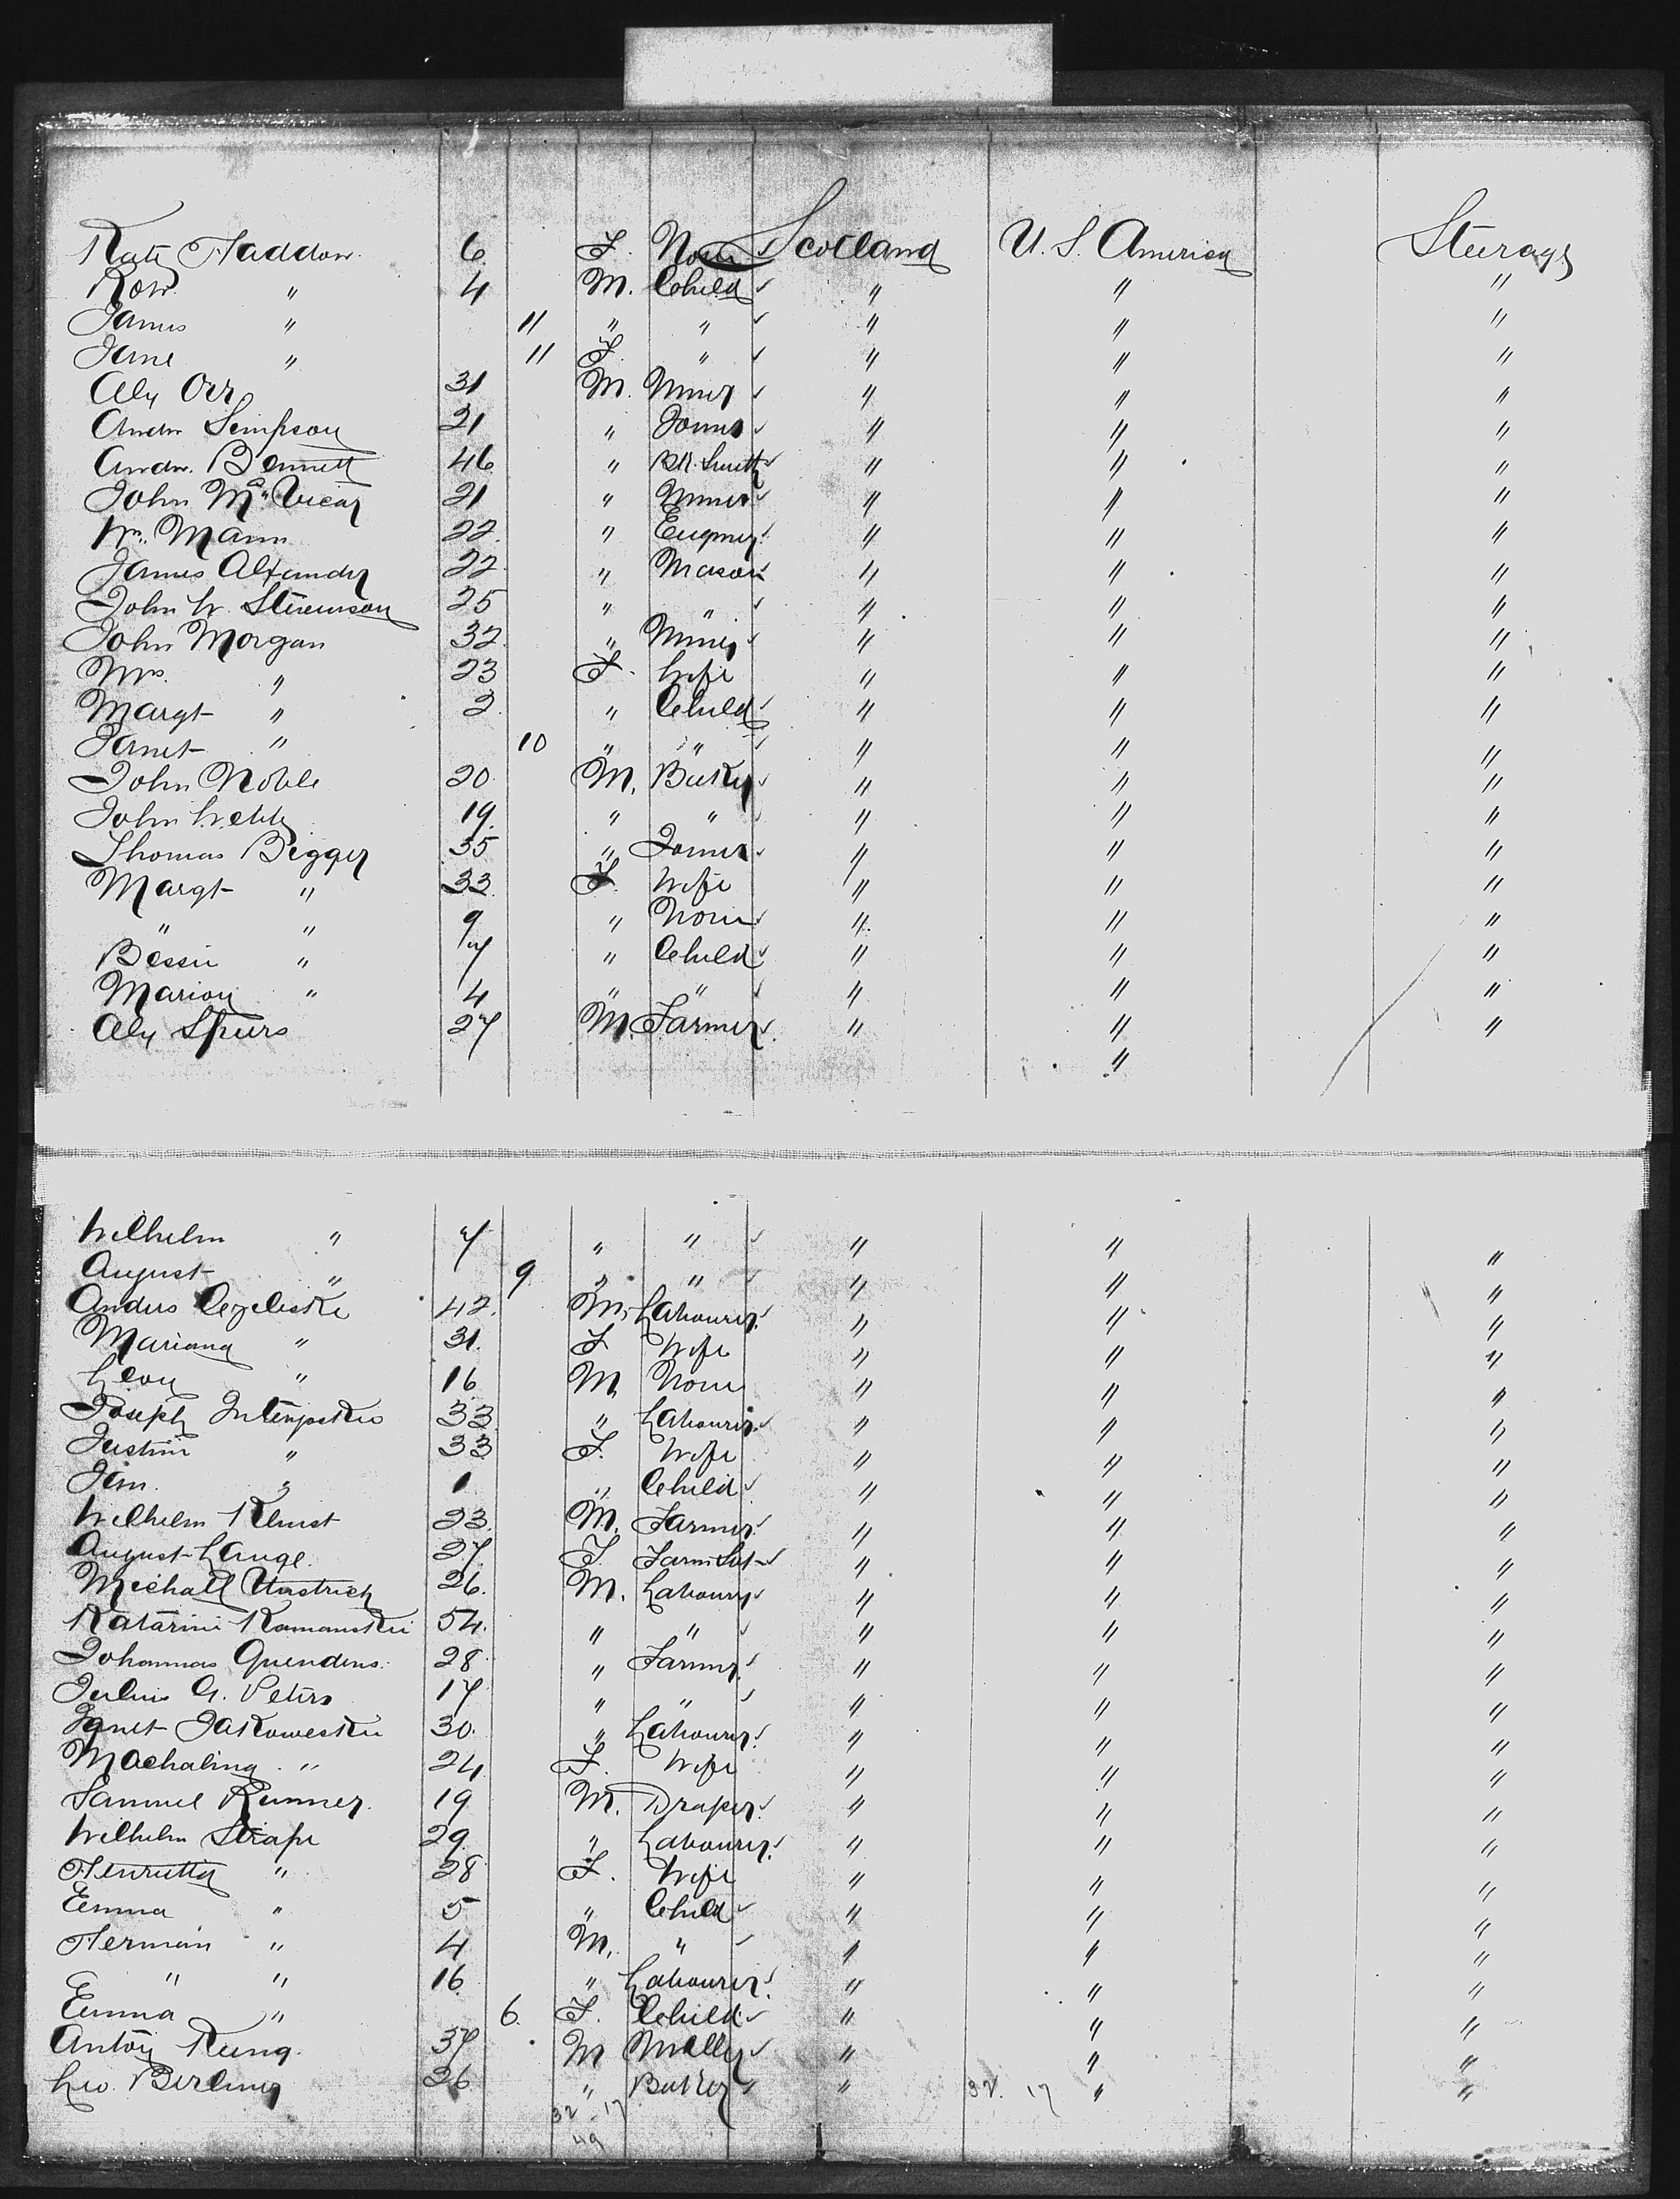 Kate Haddow 6 F. None Scotland U. S. America Steerage
Robt. " 4 M. Child " " "
James " 11 " " " " "
Jane " 11 F. " " " "
Alex Orr 31 M. Miner " " "
Andw Simpson 21 " Joiner " " "
Andw. Bennett 46 " Bk. Smith " " "
John McVicar 21 " Miner " " "
Wm. Mann 22 " Engineer " " "
James Alexander 22 " Mason " " "
John W. Stevenson 25 " " " " "
John Morgan 32 " Miner " " "
Mrs. " 23 F. Wife " " "
Margt " 2 " Child " " "
Janet " 10 " " " " "
John Noble 20 M. Baker " " "
John Webb 19 " " " " "
Thomas Bigger 35 " Joiner " " "
Margt " 33 F. Wife " " "
" " 9 " None " " "
Bessie " 7 " Child " " "
Marion " 4 " " " " "
Alex Spiers 27 M. Farmer " " "
"
Wilhelm " 7 " " " " "
August " 9 " " " " "
Andus 42 M. Labourer " " "
Mariana " 31 F Wife " " "
Leon " 16 M None " " "
Joseph 33 " Labourer " " "
Justine " 33 F. Wife " " "
Jan. " 1 " Child " " "
Wilhelm 23 M. Farmer " " "
August Lange 27 F. Farm Svt " " "
Michall 26 M. Labourer " " "
Katarini Romanskie 54 " " " " "
Johannas 28 " Farmer " " "
Julius G. Peters 17 " " " " "
Jakoweskie 30 " Labourer " " "
Machalina " 24 F. Wife " " "
Samuel Runner 19 M. Draper " " "
Wilhelm Strape 29 " Labourer " " "
Henrietta " 28 F. Wife " " "
Emma " 5 " Child " " "
Herman " 4 M. " " " "
" " 16 " Labourer " " "
Emma " 6 F. Child " " "
Anton Kung 37 M Miller " " "
Leo. Berliner 26 " Butler " 32. 17 " "
32 . 17
49